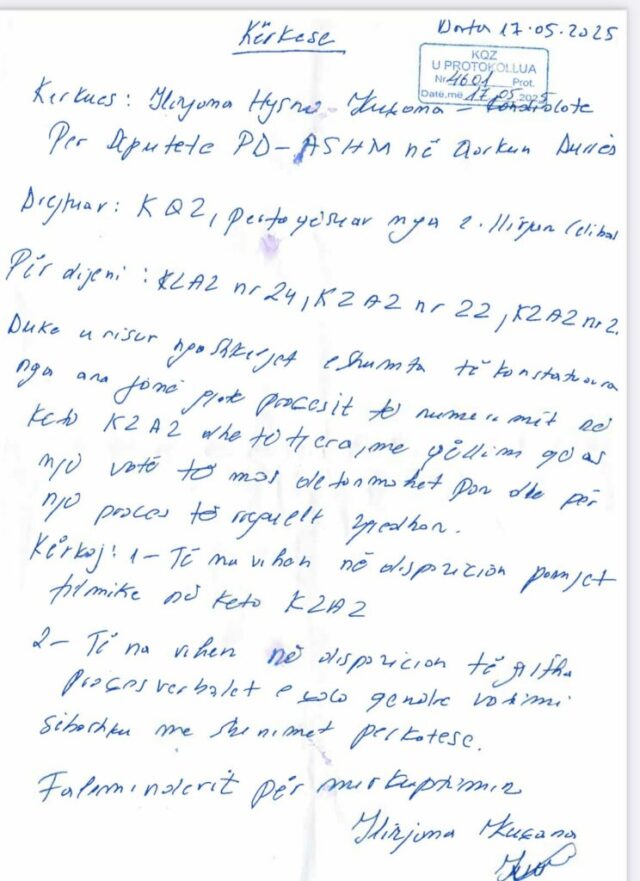 Kërkese
Data 17.05.2025
KQZ
U PROTOKOLLUA
Nr. 4601 Prot.
Datë, më 17.05 2025
Kerkues: Ilirjana Hysno - Kukana - Kandidate
Per Deputete PD-ASHM në Qarkun Durrës
Drejtuar: KQZ, përfaqësuar nga z. Ilirjan Celibashi
Për dijeni: KZAZ nr 24, KZAZ nr 22, KZAZ nr 2.
Duke u nisur nga shkeljet e shumta të konstatuara
nga ana jonë gjatë procesit të numerimit në
keto KZAZ dhe të tjera, me qëllim që as
një votë të mos detonmohet por dhe për
një proces të rregullt zgjedhor.
Kërkoj: 1- Të na vihen në dispozicion pamjet
filmike në keto KZAZ
2- Të na vihen në dispozicion të gjitha
procesverbalet e çdo qendre votimi
sëbashku me shënimet perkatese.
Faleminderit për mirkuptimin
Ilirjana Kukana